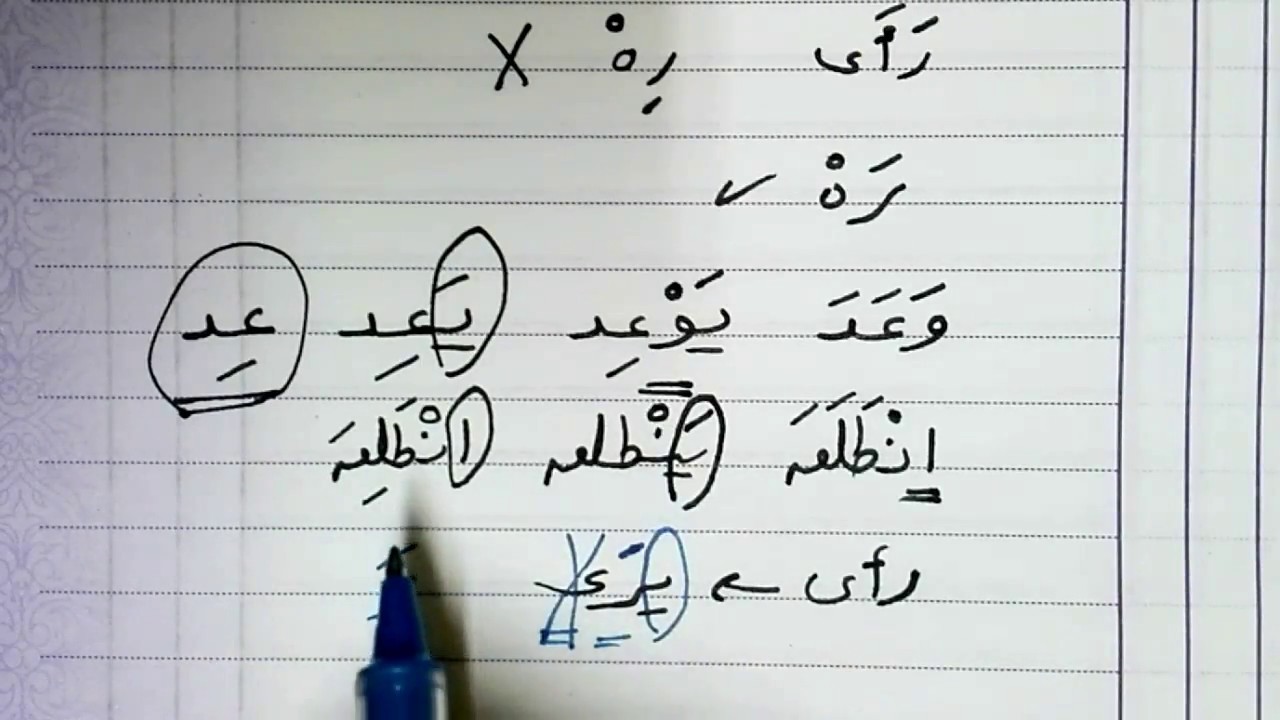 رَأَى رِهْ X
رَهْ ✓
وَعَدَ يَوْعِد يَعِد عِد
اِنْطَلَقَ يَنْطلق انْطَلِقَ
رأى ← يَرَى